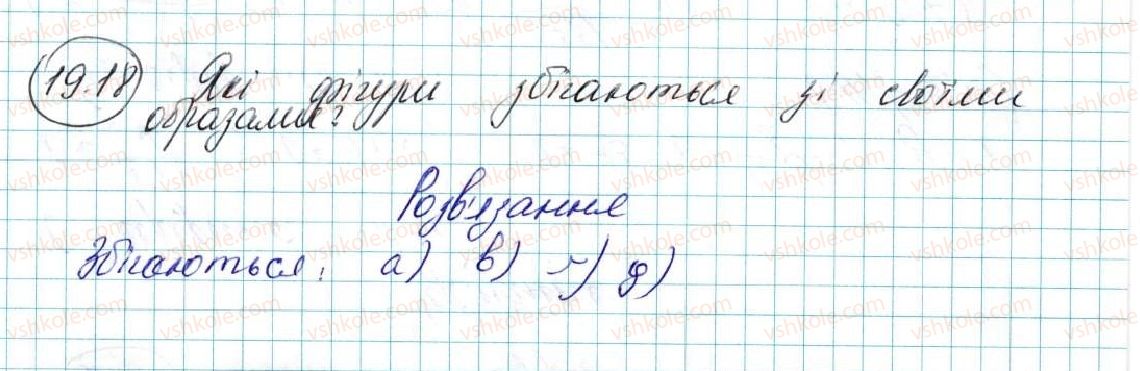 19.18 Які фігури збігаються зі своїми
образами?
Розв'язання
Збігаються: а) в) г) д)